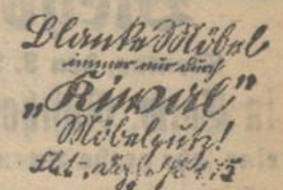 Blanke Möbel
immer nur durch
„Kiwal"
Möbelputz!